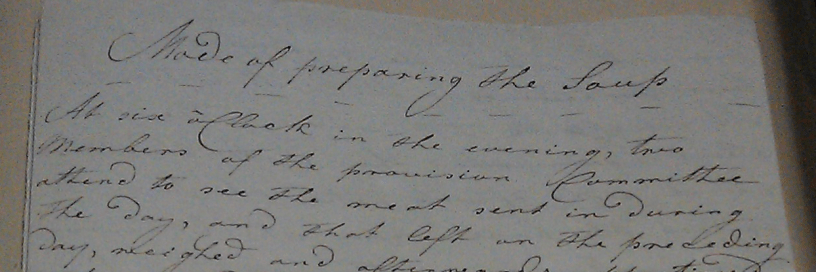 Mode of preparing the Soup
At six o'Clock in the evening, two
Members of the provision Committee
attend to see the meat sent in during
the day, and that left on the preceding
day, weighed and afterwards